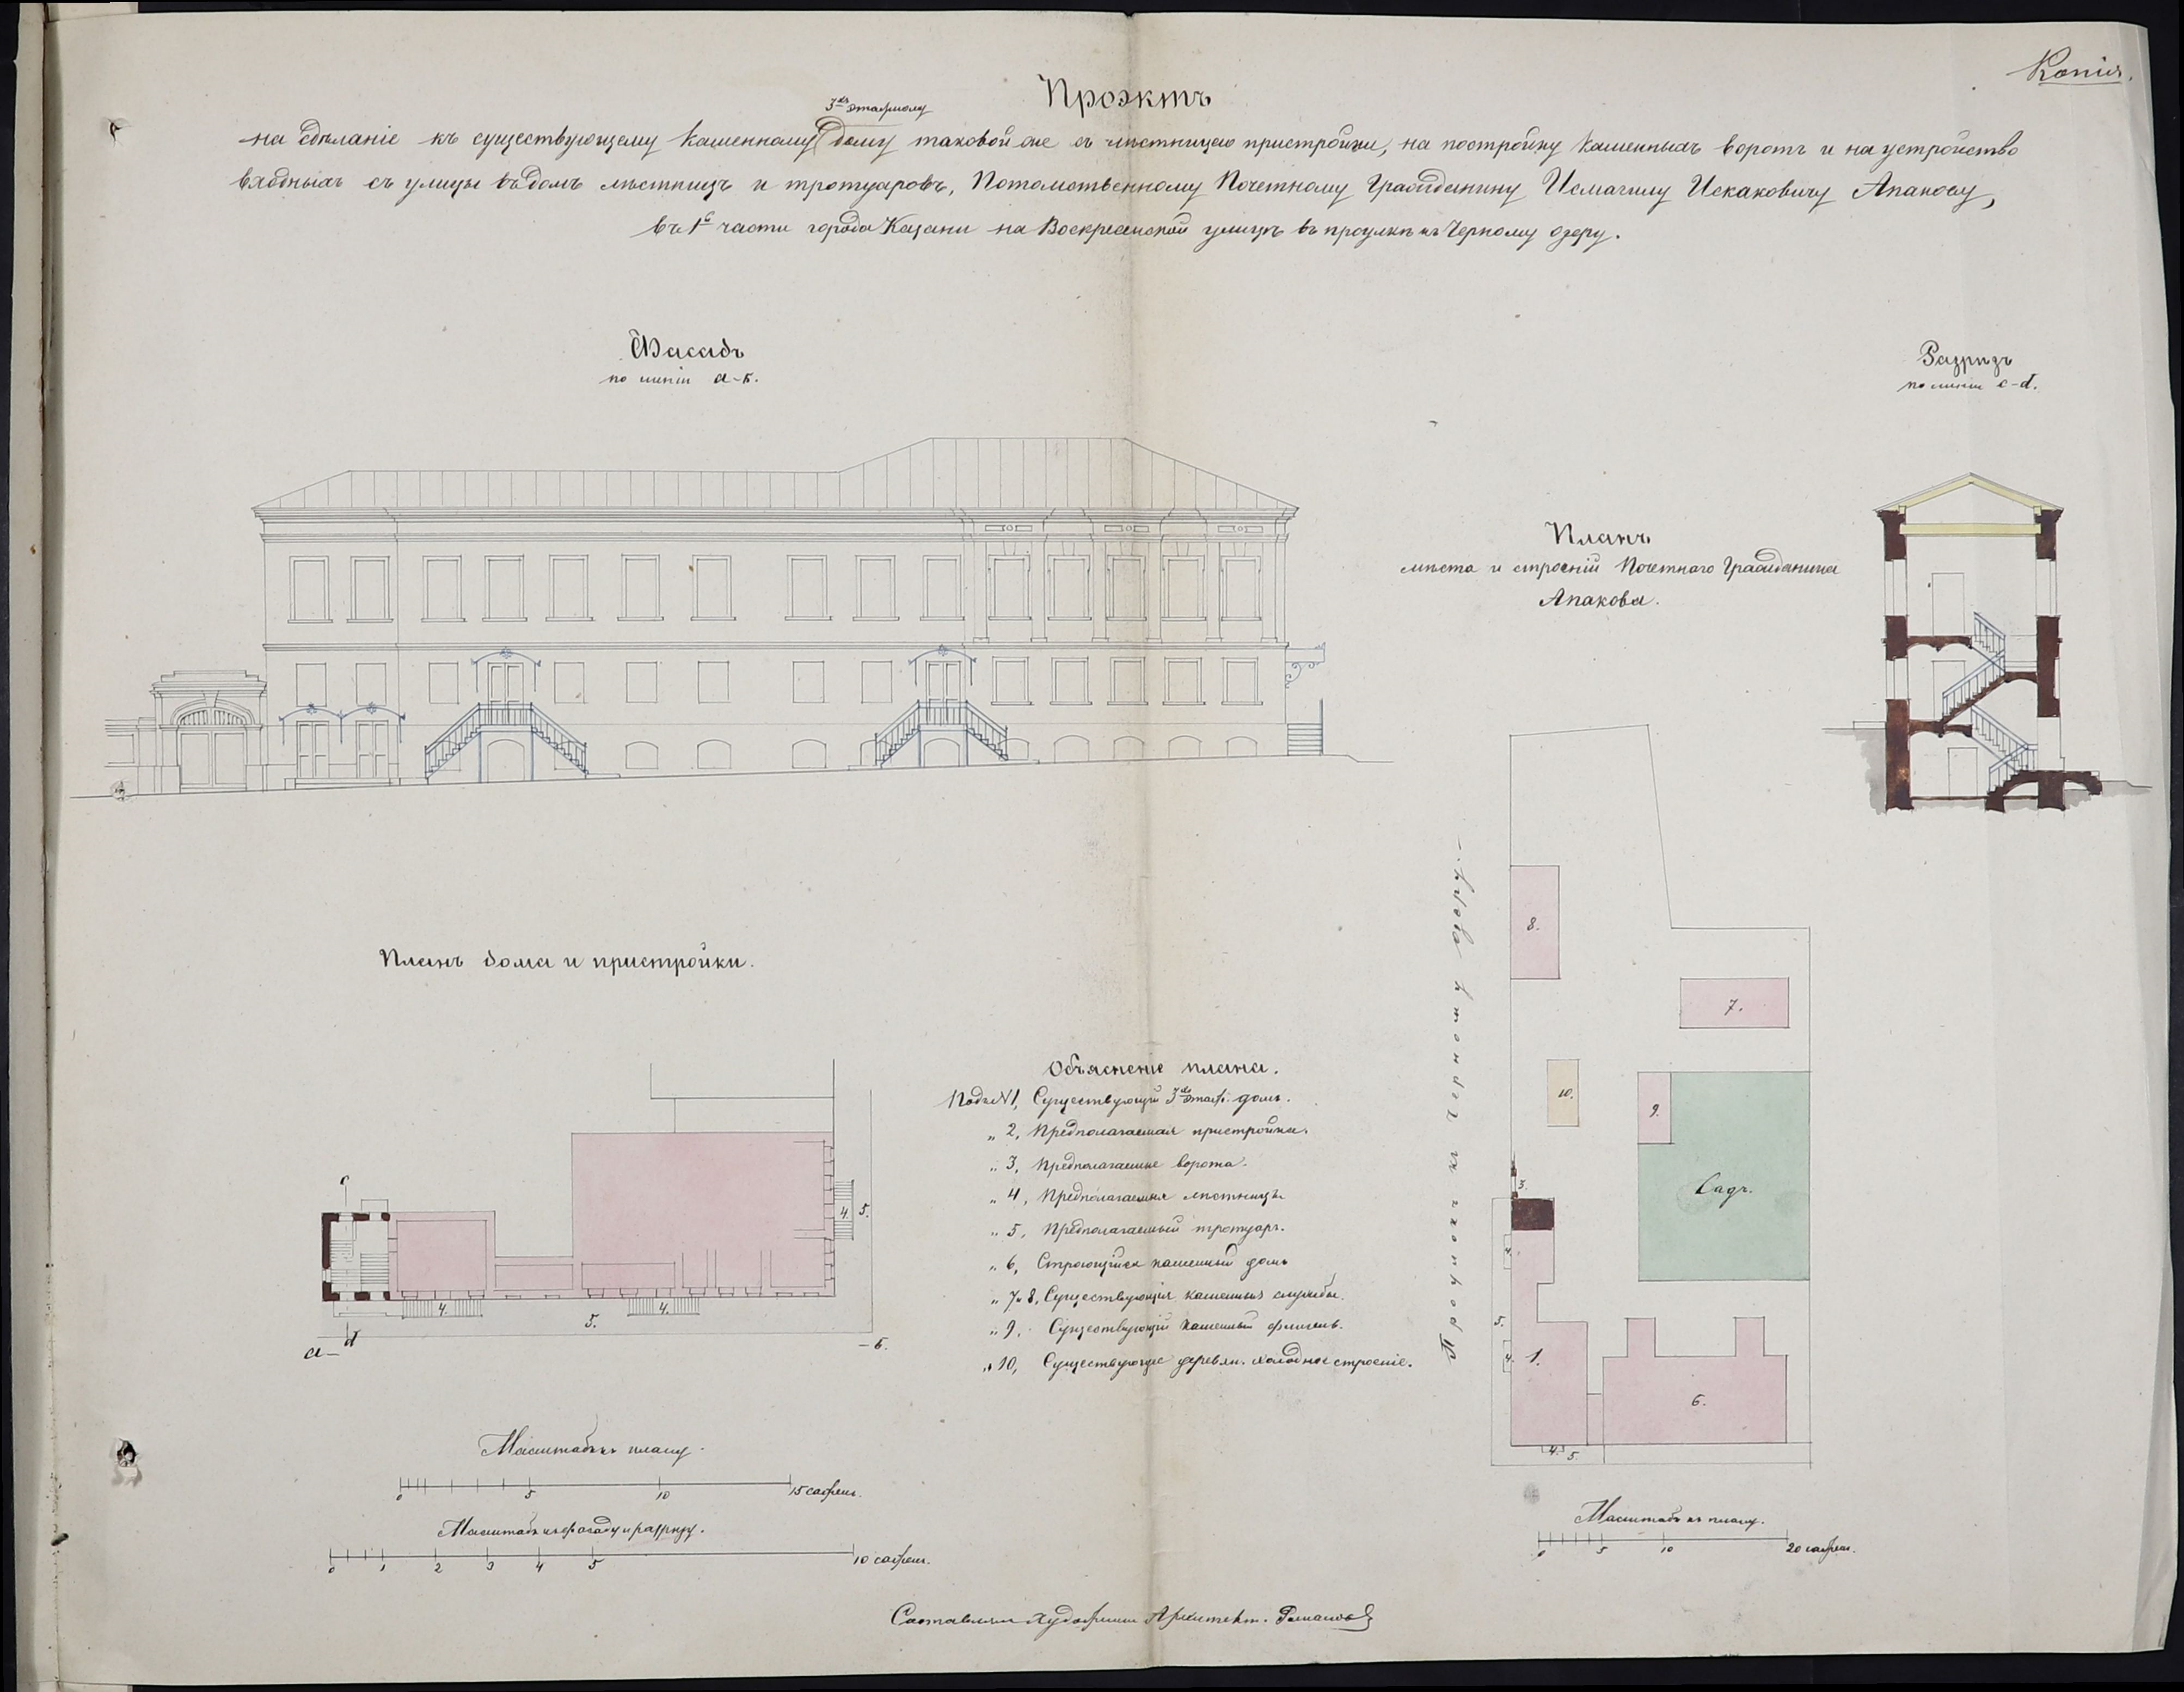 Копія.
Проэктъ
3хъ этажному
на сдѣланіе къ существующему каменному дому таковой же съ лѣстницею пристройки, на постройку каменныхъ воротъ и на устройство
входныхъ съ улицы въ домъ лѣстницъ и тротуаровъ, Потомственному Почетному Гражданину Исмагилу Искаковичу Апакову,
въ 1й части города Казани на Воскресенской улицѣ въ проулкѣ къ Черному озеру.
Фасадъ
по линіи а-б.
Разрѣзъ
по линіи c-d.
Планъ
мѣста и строеній Почетнаго Гражданина
Апакова.
Планъ дома и пристройки.
Объясненіе плана.
Подъ №1, Существующій 3хъ этаж. домъ.
" 2, Предполагаемая пристройка.
" 3, Предполагаемые ворота.
" 4, Предполагаемыя лѣстницы.
" 5, Предполагаемый тротуаръ.
" 6, Строющійся каменный домъ
" 7 и 8, Существующія каменныя службы.
" 9, Существующій каменный флигель.
" 10, Существующее деревян. холодное строеніе.
c
4.
5.
4.
5.
4.
a-
d
-б.
Проулокъ къ Черному озеру.
8.
7.
10.
9.
Садъ.
3.
4.
5.
4.
1.
6.
4.
5.
Масштабъ къ плану.
0 5 10 15 сажень.
Масштабъ къ фасаду и разрѣзу.
0 1 2 3 4 5 10 сажен.
Масштабъ къ плану.
0 5 10 20 сажен.
Составлялъ Художникъ Архитект. Романовъ